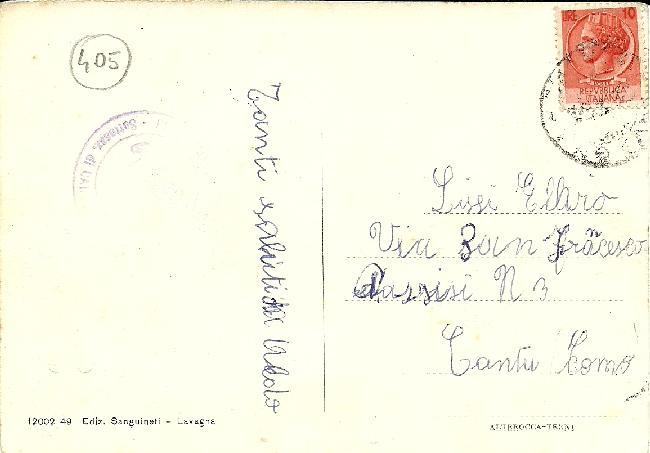 405
LIRE 10
REPVBBLICA
ITALIANA
Tanti saluti da Aldo
Lissi Ellaro
Via San Francesco
d'assisi N 3
Cantu Como
12002 49 Ediz. Sanguineti - Lavagna
ALTEROCCA-TERNI